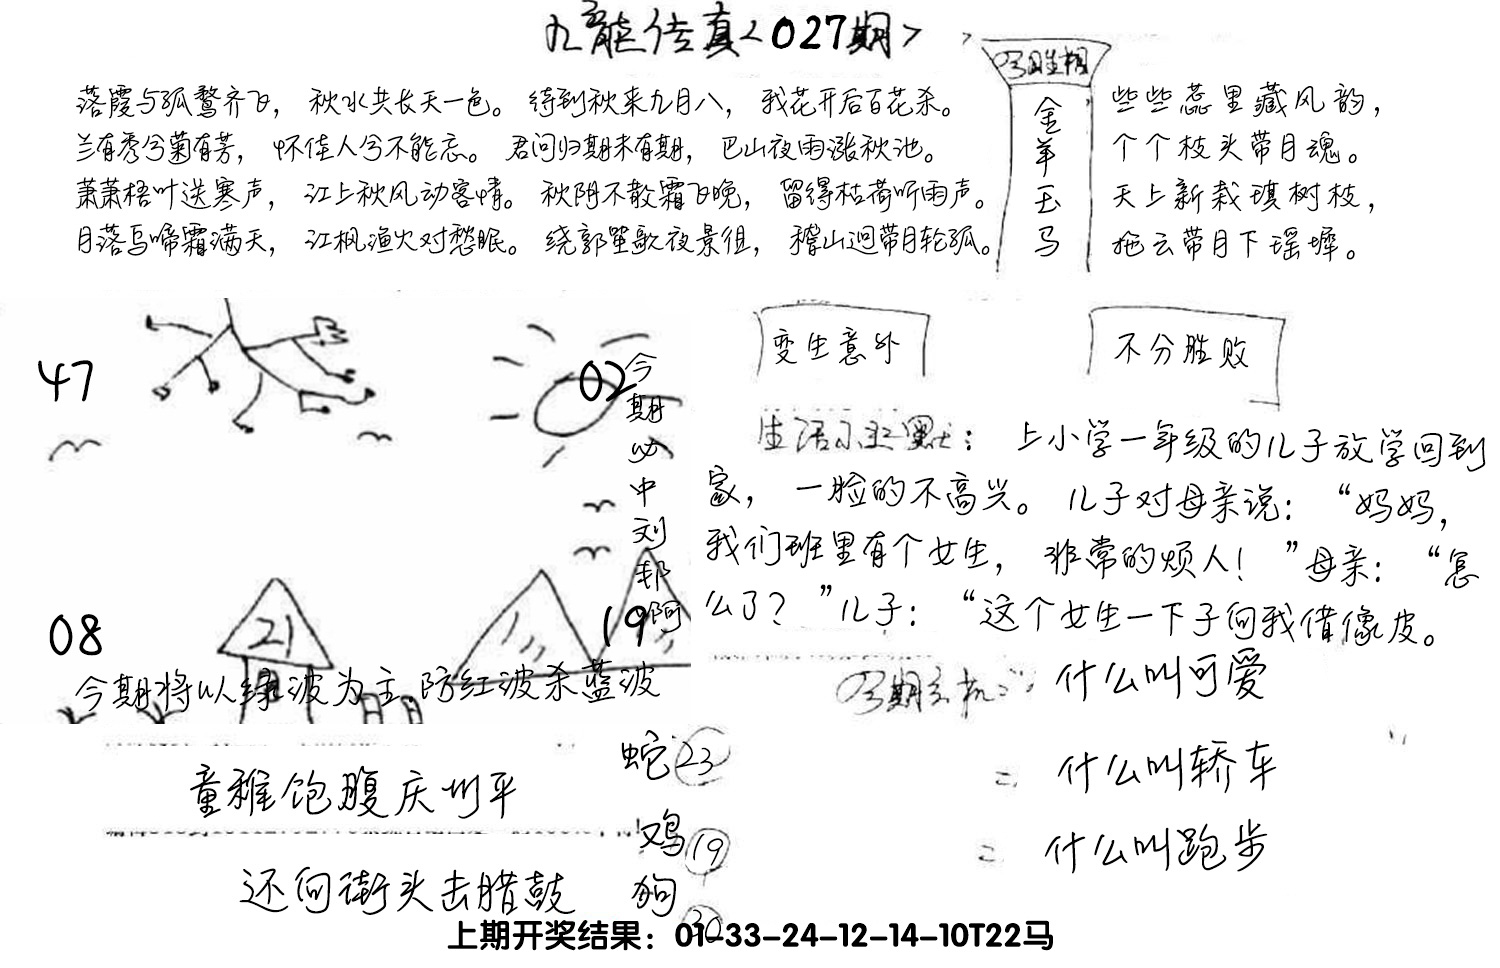 九龙传真<027期>
落霞与孤鹜齐飞，秋水共长天一色。待到秋来九月八，我花开后百花杀。
兰有秀兮菊有芳，怀佳人兮不能忘。君问归期未有期，巴山夜雨涨秋池。
萧萧梧叶送寒声，江上秋风动客情。秋阴不散霜飞晚，留得枯荷听雨声。
月落乌啼霜满天，江枫渔火对愁眠。绕郭笙歌夜景徂，稽山迥带月轮孤。
金羊玉马
些些蕊里藏风韵，
个个枝头带月魂。
天上新栽琪树枝，
拖云带月下瑶墀。
47
02
08
21
19
今期必中刘邦阿
今期将以绿波为主.防红波杀蓝波
变生意外
不分胜败
生活小幽默：上小学一年级的儿子放学回到
家，一脸的不高兴。儿子对母亲说：“妈妈，
我们班里有个女生，非常的烦人！”母亲：“怎
么了？”儿子：“这个女生一下子向我借像皮。
今期玄机一：什么叫可爱
二 什么叫轿车
二 什么叫跑步
童稚饱腹庆升平
还向街头击腊鼓
蛇 23
鸡 19
狗 30
上期开奖结果：01-33-24-12-14-10T22马